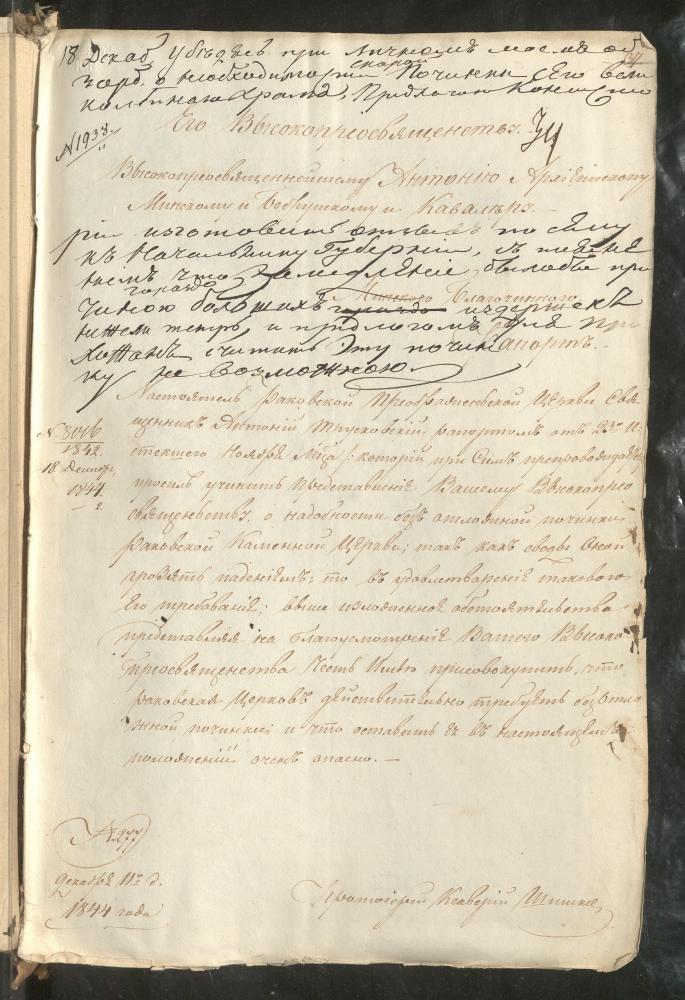 18 Декаб. Убѣдясь при личномъ моемъ об
зорѣ о необходимости скорой Починки сего вели
колѣпнаго храма, Предлагаю Консисто
Его Высокопреосвященству
N 1938.
Высокопреосвященнейшему Антонію Архіепископу
Минскому и Бобруйскому и Кавалеру.
ріи изготовить отзывъ по сему
къ Начальнику Губерніи, съ
нiемъ что замедленіе, было бы при
чиною гораздо большихъ издержекъ
Минского Благочинного
нежели теперь, и предлогомъ для При
Рапортъ.
хожанъ считать эту почин
ку не возможною.
Настоятель Раковской Преображенской Церкви Свя
щенникъ Антоній Трусковскій рапортомъ отъ 23го И
стекшего Ноября М-ца: который при Симъ препровождая
просилъ учинить представленіе Вашему Высокопрео
священству, о надобности безъ отложной починки
Раковской Каменной Церкви; такъ какъ своды Оной
грозятъ паденіемъ: то въ удовлетвореніе такового
Его требованія; выше изложенное обстоятельство
представляя на благоусмотреніе Вашего Высоко
преосвященства Честь Имѣю присовокупить, что
Раковская Церковь дѣйствительно требуетъ безотло
жной починки и что оставить её въ настоящемъ
положеніи очень опасно. —
N. 3046
1842.
18 Декабря
1844
N 277
Декабря 11го д.
1844 года
Протоіерей Ксаверій